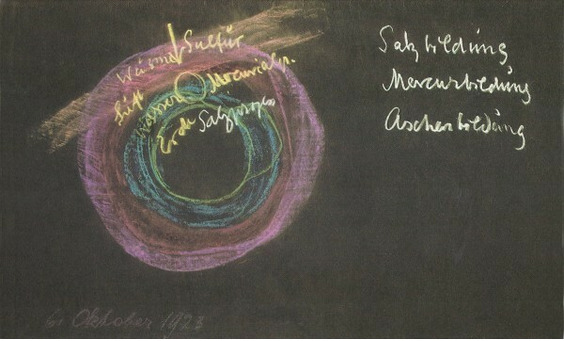 Wärme Sulfür
Luft Mercurialpr.
Wasser
Erde Salzprozess
Salzbildung
Mercurbildung
Aschenbildung
6. Oktober 1923